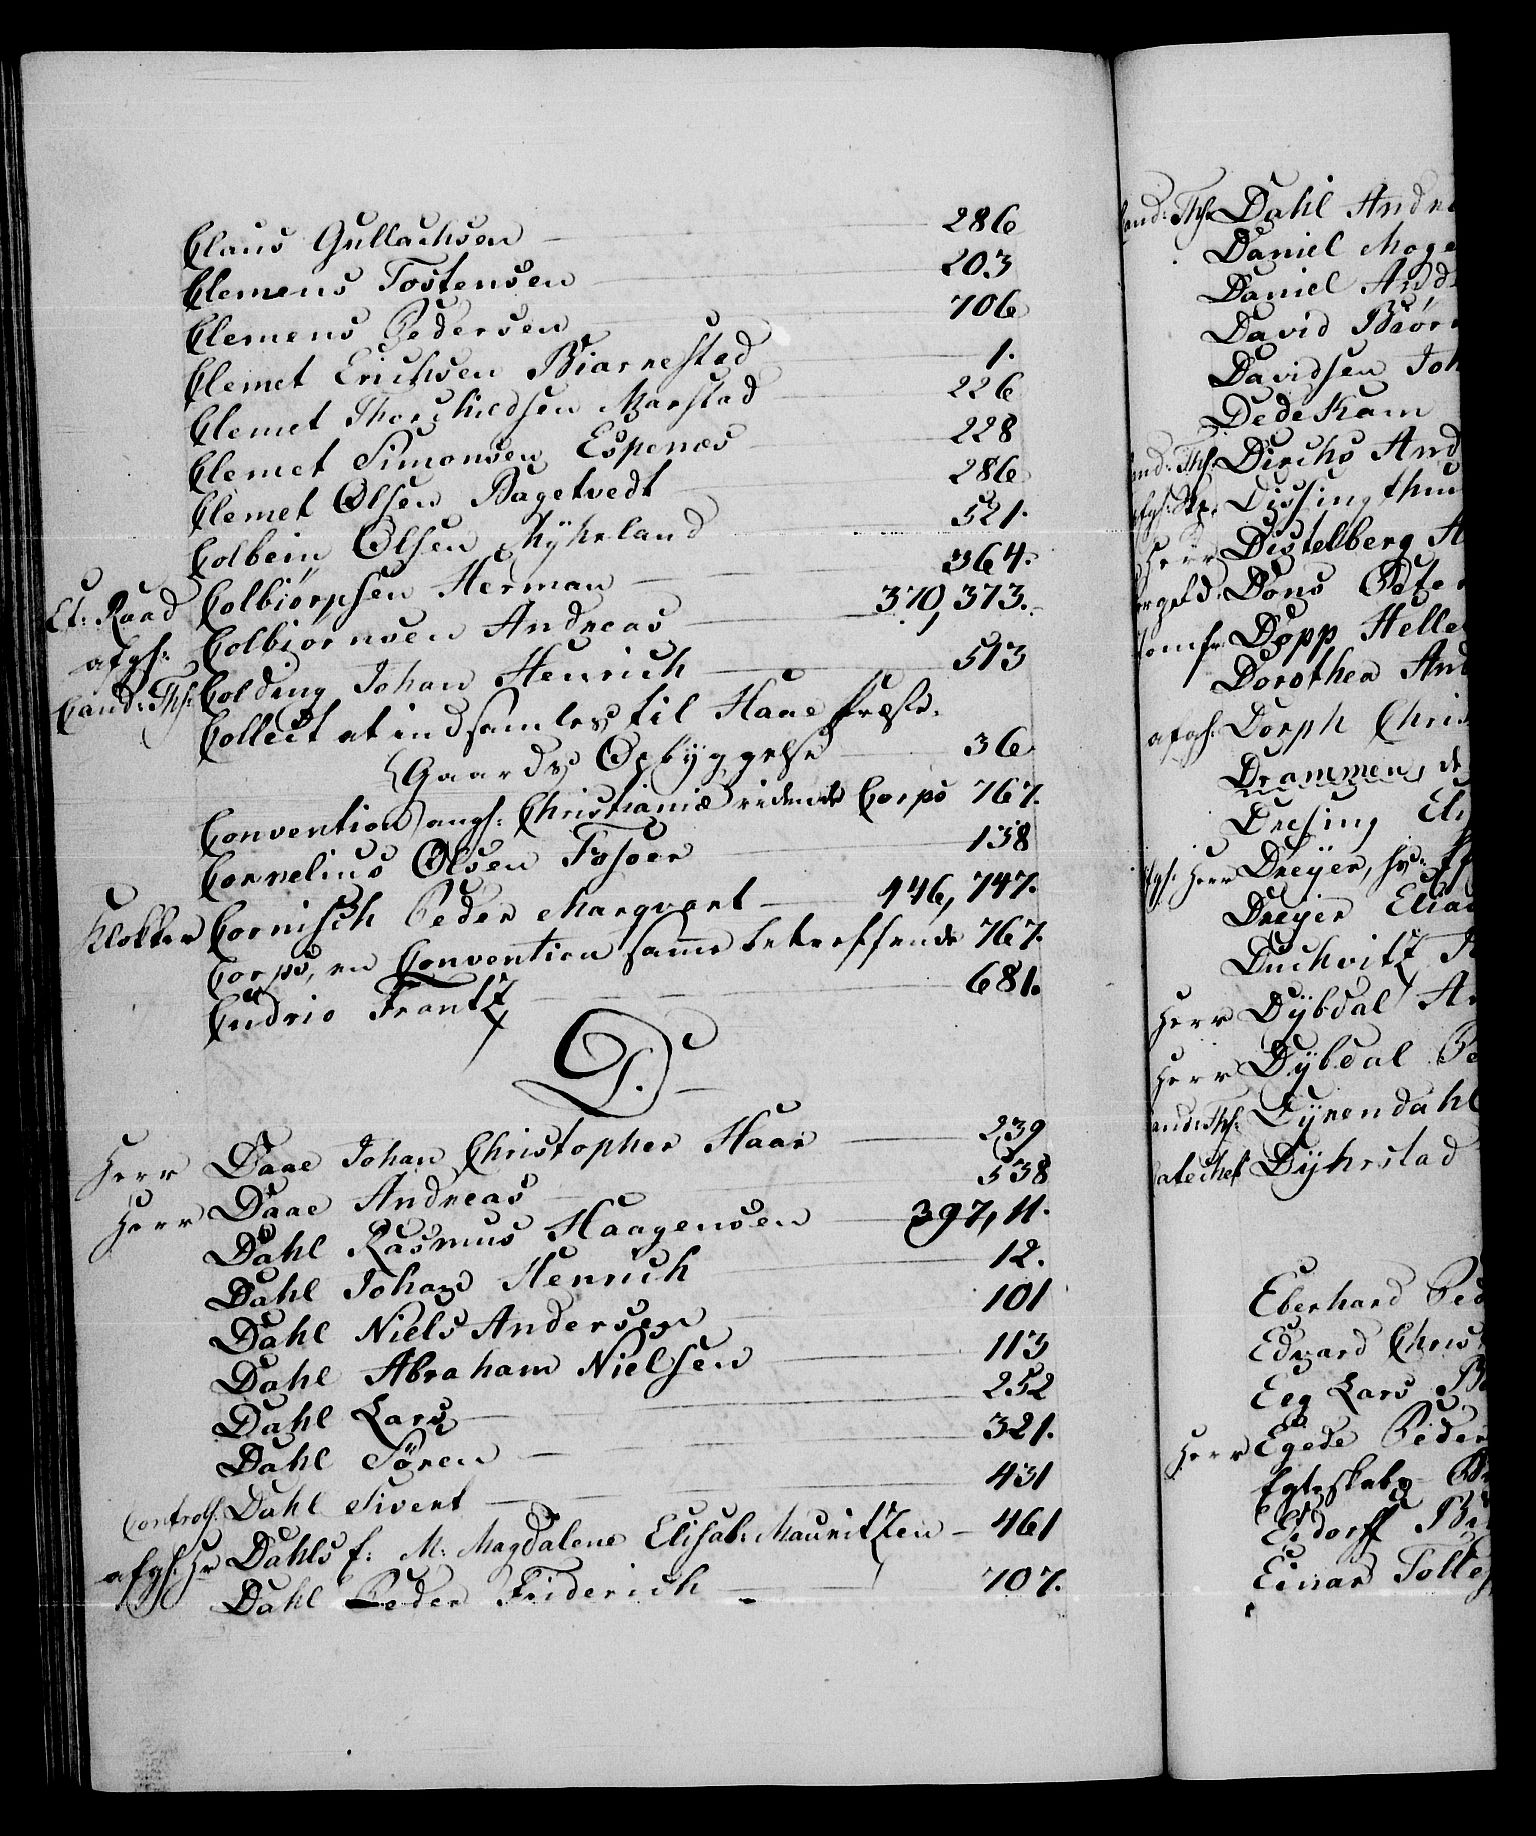 Claus Gullachsen — 286
Clemens Tostensen — 203
Clemens Pedersen — 706
Clemet Erichsen Biarnestad — 1.
Clemet Thorchildsen Marstad — 226
Clemet Simonsen Espenæs — 228
Clemet Olsen Bagetvedt — 286
Colbein Olsen Mykeland — 521.
Et: Raad Colbiørnsen Herman — 364.
afgh: Colbiørnsen Andreas — 370, 373.
Cand: Th: Colding Johan Henrich — 513
Collect at indsamles til Haae Præste-
Gaards Opbyggelse — 36
Convention angh: Christianiæ ridende Corps 767.
Cornelius Olsen Fosser — 138
Klokker Cornisch Peder Marqvart — 446, 747.
Corps, en Convention samme betreffende 767.
Cudrio Frantz — 681.
D.
Herr Daae Johan Christopher Haar — 239
Herr Daae Andreas — 538
Dahl Rasmus Haagensen — 397, 11.
Dahl Johan Henrich — 12.
Dahl Niels Andersen — 101
Dahl Abraham Nielsen — 113
Dahl Lars — 252
Dahl Sören — 321.
Dahl Sivert — 431
Controll: afgh: Hr Dahls f: M: Magdalene Elisab: Mauritzen — 461
Dahl Peder Friderich — 707.
Cand: Th: Dahl Andre
Daniel Moge
Daniel And
David Biør
Davidsen Joh
Dedekam
And: Th: Dirchs And
Dissingthun
Herr Distelberg A
Dons Peter
Dopp Helle
Dorothea And
afgh: Dorph Chris
Drammen, d
Dresing El
afgh: Herr Dreyer,
Dreyer Elia
Duchvitz
Herr Dybdal An
Herr Dybdal Pe
and: Th: Dyrendahl
Catechet Dyhrstad
Eberhard Ped
Edvard Chris
Eeg Lars
Herr Egede Peder
Egteskabs
Eidorff
Einar Tolle